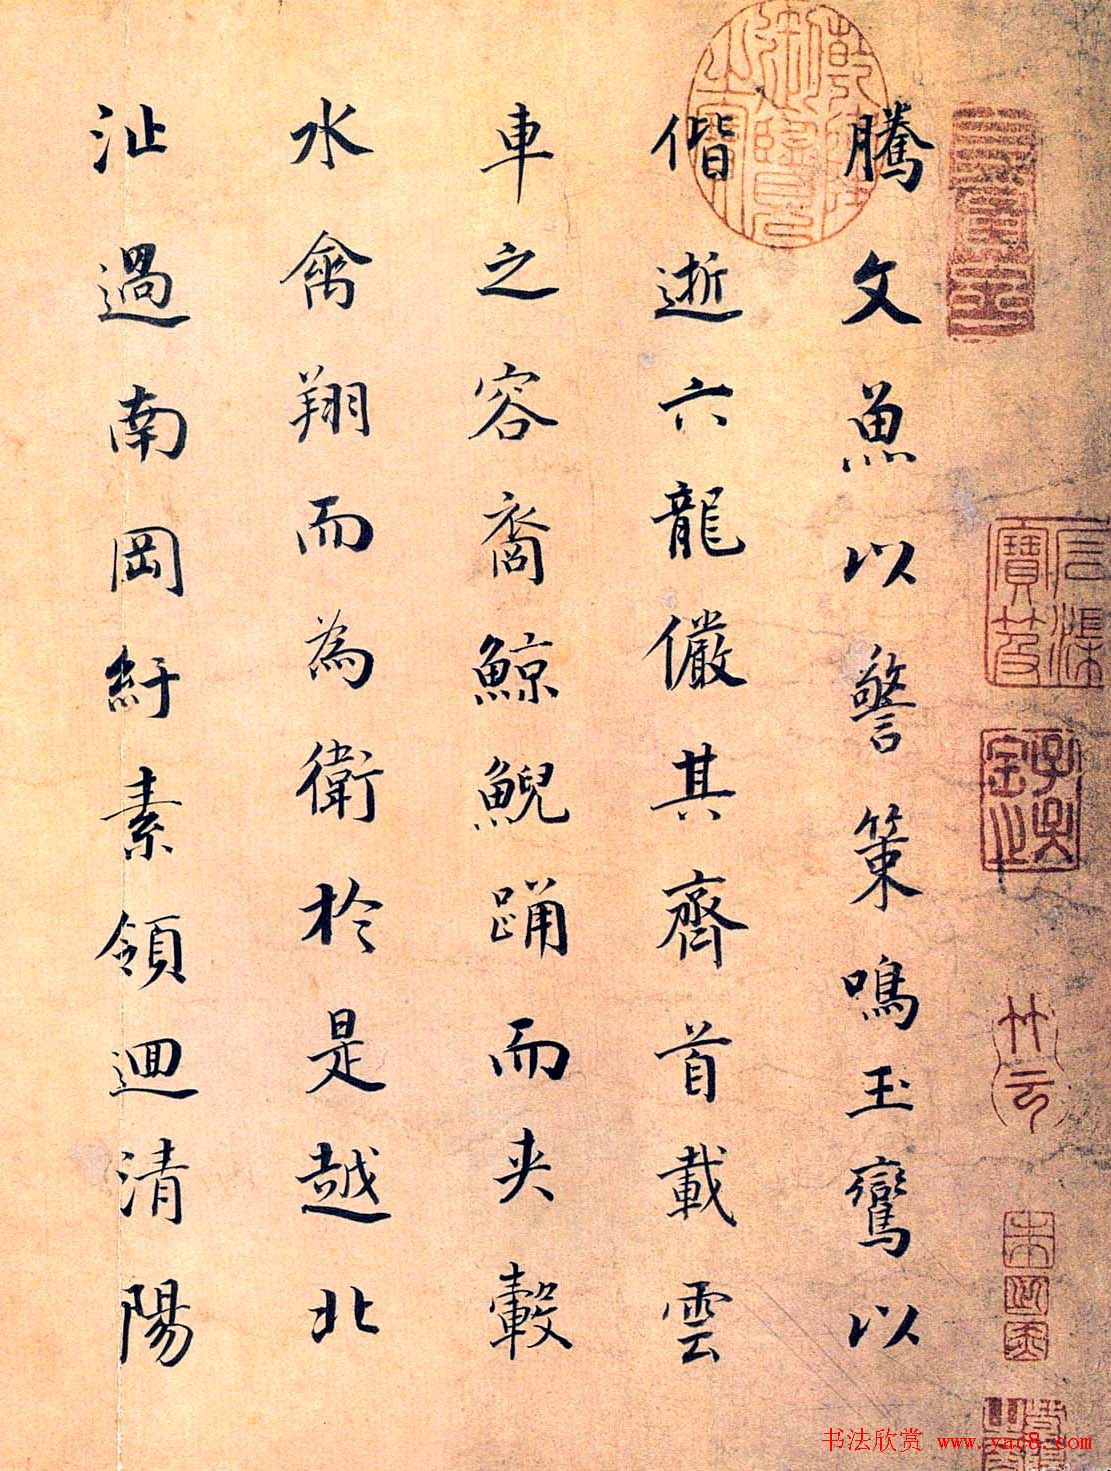 騰文魚以警策鳴玉鸞以
偕逝六龍儼其齊首載雲
車之容裔鯨鯢踊而夾轂
水禽翔而為衛於是越北
沚過南岡紆素領迴清陽
乾隆御覽之寶
書法欣赏 www.yac8.com